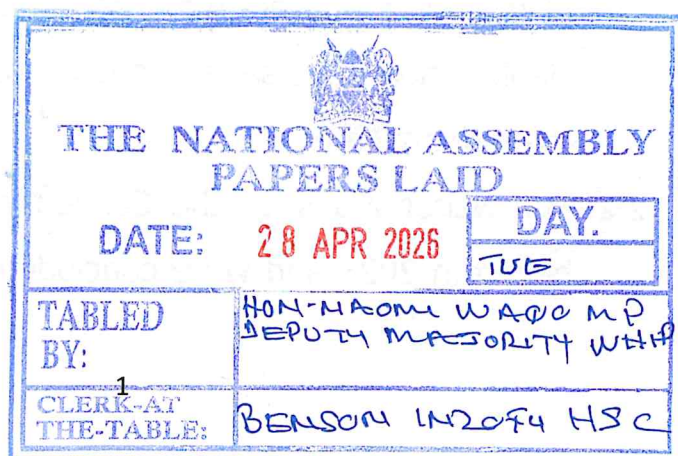 THE NATIONAL ASSEMBLY
PAPERS LAID
DATE: 28 APR 2026
DAY.
TUE
TABLED BY:
HON. NAOMI WAQO MP
DEPUTY MAJORITY WHIP
1
CLERK-AT THE-TABLE:
BENSON INZOFU HSC